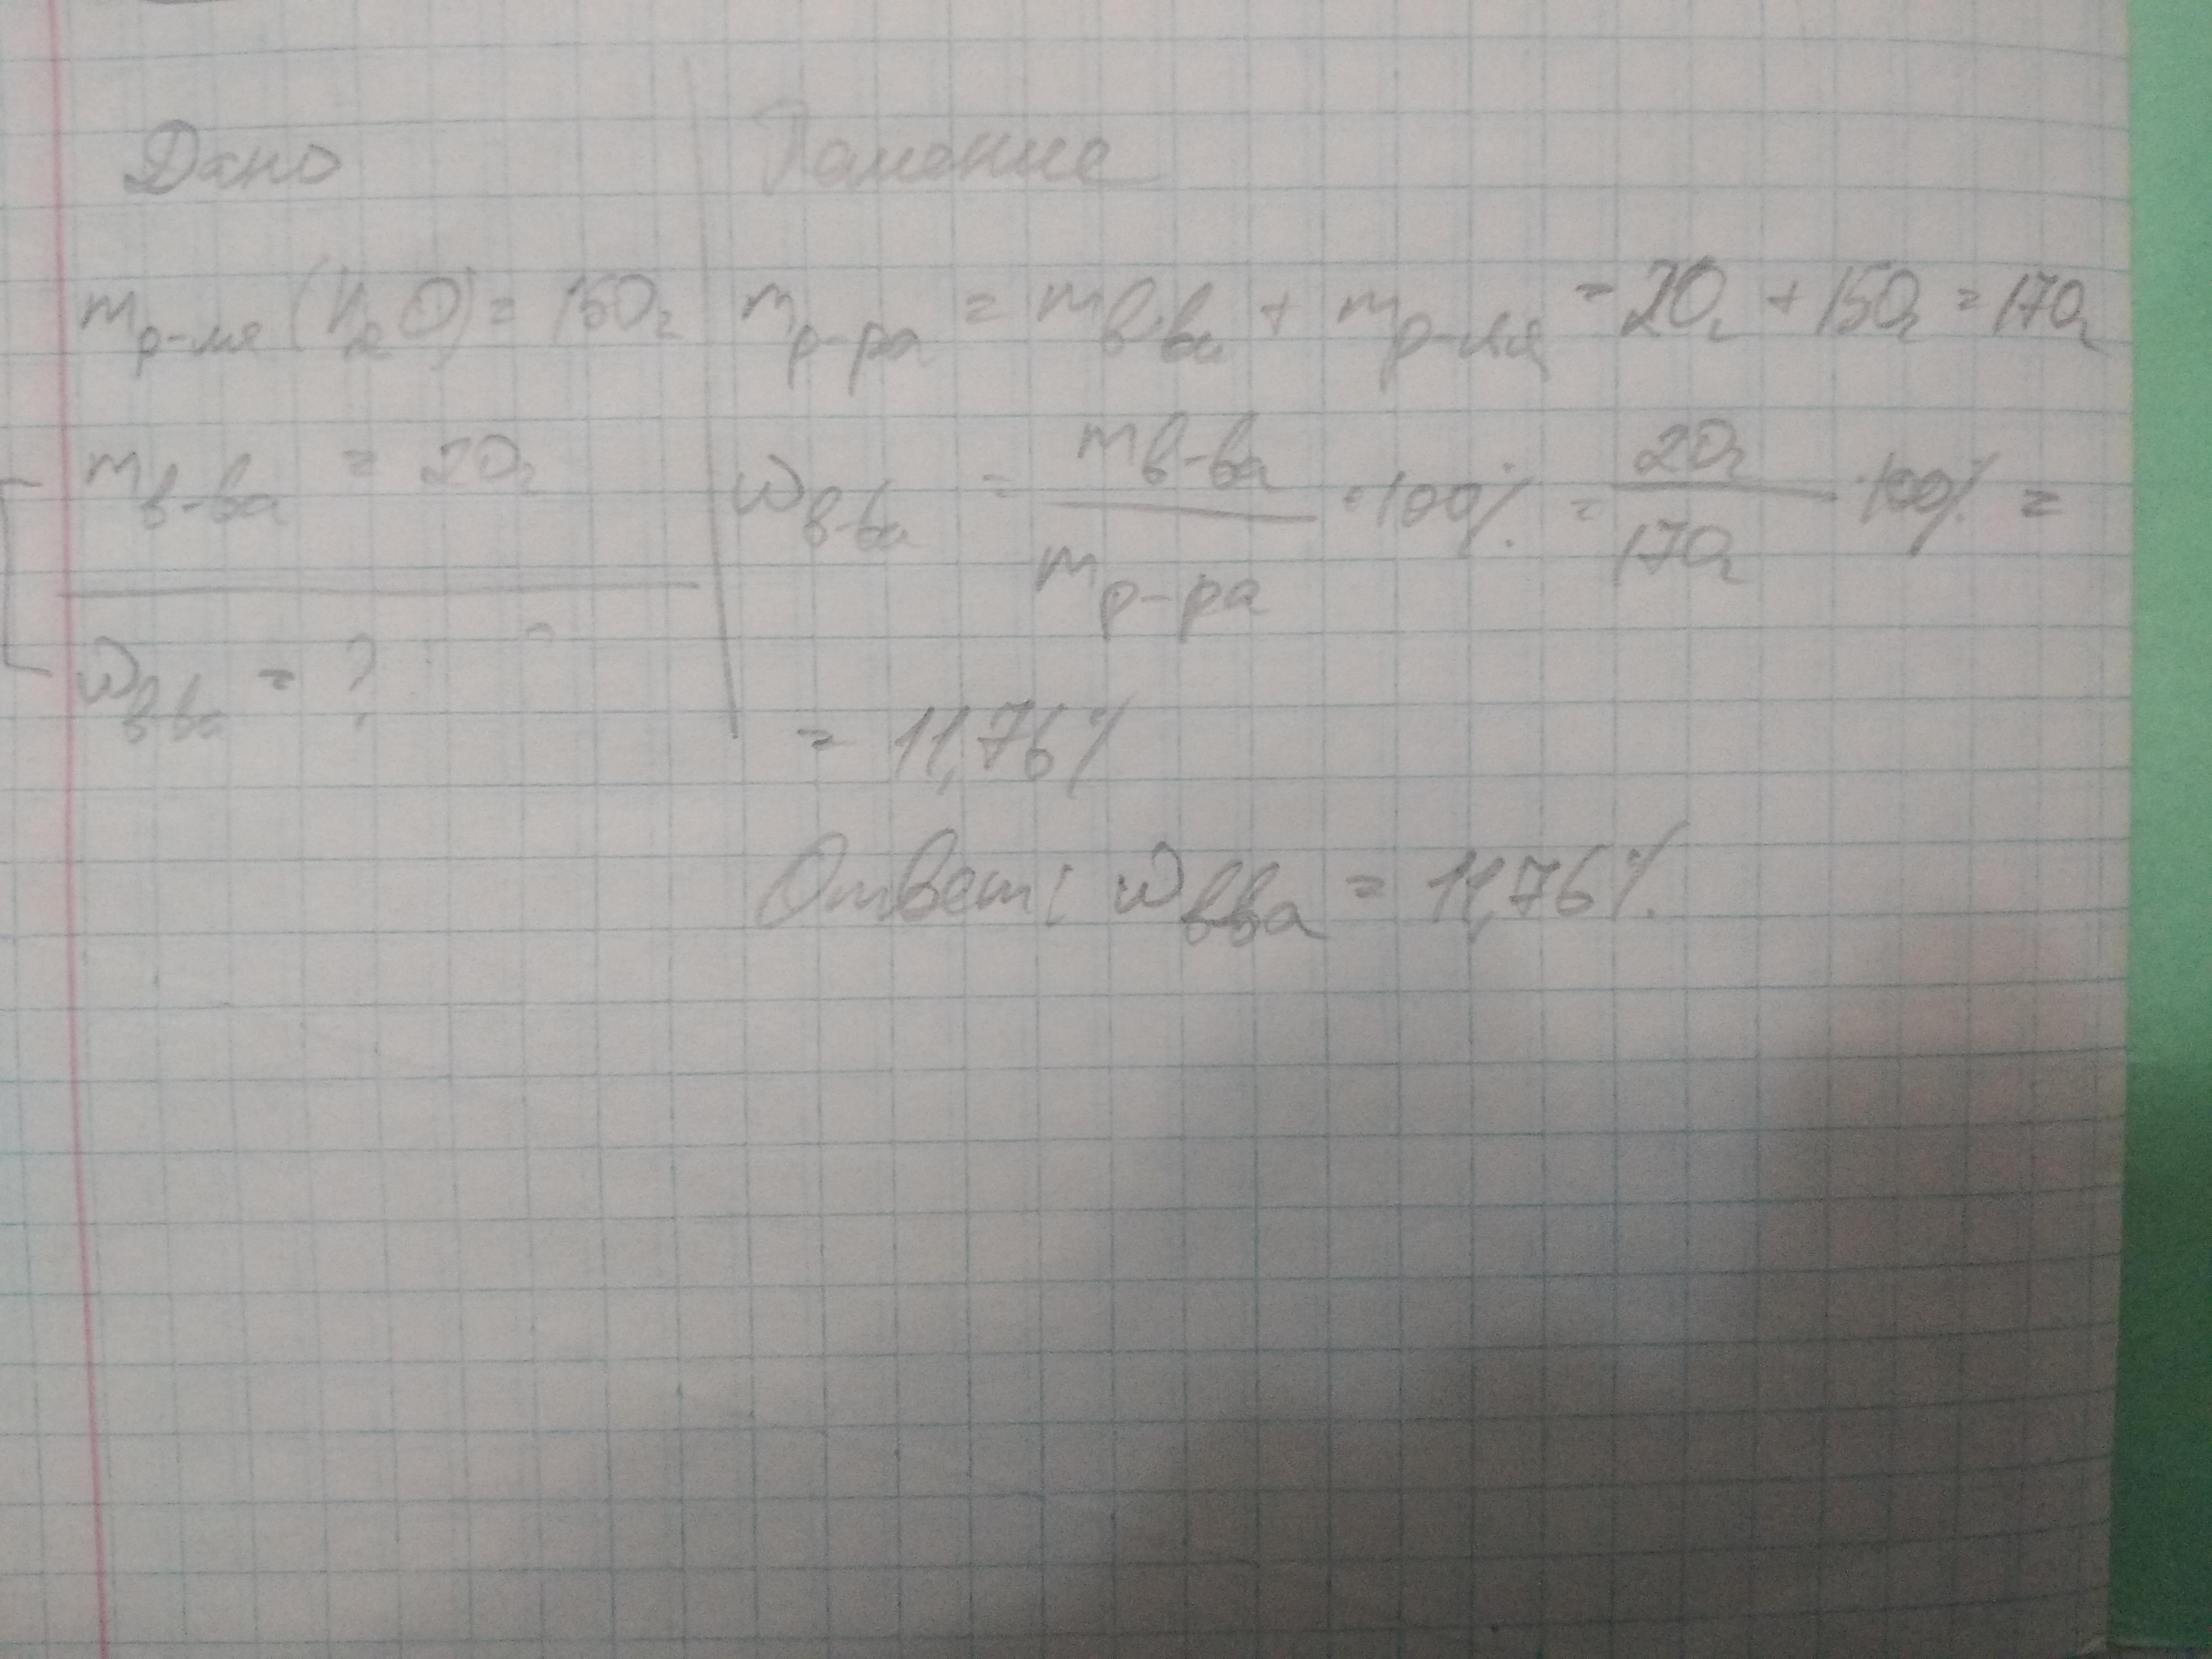 Дано
m р-ля (H2O) = 150г
m в-ва = 20г
w в-ва = ?
Решение
m р-ра = m в-ва + m р-ля = 20г + 150г = 170г
w в-ва = m в-ва / m р-ра · 100% = 20г / 170г · 100% =
= 11,76%
Ответ: w в-ва = 11,76%.